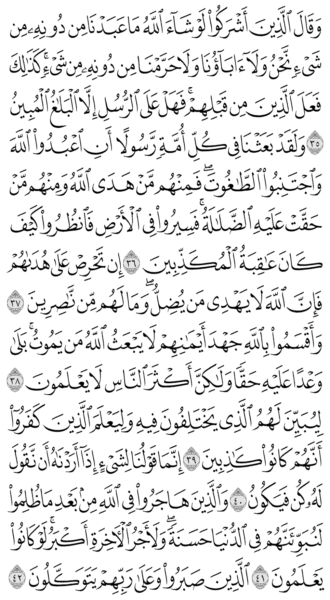 وَقَالَ ٱلَّذِينَ أَشْرَكُوا۟ لَوْ شَآءَ ٱللَّهُ مَا عَبَدْنَا مِن دُونِهِۦ مِن
شَىْءٍ نَّحْنُ وَلَآ ءَابَآؤُنَا وَلَا حَرَّمْنَا مِن دُونِهِۦ مِن شَىْءٍ ۚ كَذَٰلِكَ
فَعَلَ ٱلَّذِينَ مِن قَبْلِهِمْ ۚ فَهَلْ عَلَى ٱلرُّسُلِ إِلَّا ٱلْبَلَٰغُ ٱلْمُبِينُ
٣٥ وَلَقَدْ بَعَثْنَا فِى كُلِّ أُمَّةٍ رَّسُولًا أَنِ ٱعْبُدُوا۟ ٱللَّهَ
وَٱجْتَنِبُوا۟ ٱلطَّٰغُوتَ ۖ فَمِنْهُم مَّنْ هَدَى ٱللَّهُ وَمِنْهُم مَّنْ
حَقَّتْ عَلَيْهِ ٱلضَّلَٰلَةُ ۚ فَسِيرُوا۟ فِى ٱلْأَرْضِ فَٱنظُرُوا۟ كَيْفَ
كَانَ عَٰقِبَةُ ٱلْمُكَذِّبِينَ ٣٦ إِن تَحْرِصْ عَلَىٰ هُدَىٰهُمْ
فَإِنَّ ٱللَّهَ لَا يَهْدِى مَن يُضِلُّ ۖ وَمَا لَهُم مِّن نَّٰصِرِينَ ٣٧
وَأَقْسَمُوا۟ بِٱللَّهِ جَهْدَ أَيْمَٰنِهِمْ ۙ لَا يَبْعَثُ ٱللَّهُ مَن يَمُوتُ ۚ بَلَىٰ
وَعْدًا عَلَيْهِ حَقًّا وَلَٰكِنَّ أَكْثَرَ ٱلنَّاسِ لَا يَعْلَمُونَ ٣٨
لِيُبَيِّنَ لَهُمُ ٱلَّذِى يَخْتَلِفُونَ فِيهِ وَلِيَعْلَمَ ٱلَّذِينَ كَفَرُوٓا۟
أَنَّهُمْ كَانُوا۟ كَٰذِبِينَ ٣٩ إِنَّمَا قَوْلُنَا لِشَىْءٍ إِذَآ أَرَدْنَٰهُ أَن نَّقُولَ
لَهُۥ كُن فَيَكُونُ ٤٠ وَٱلَّذِينَ هَاجَرُوا۟ فِى ٱللَّهِ مِنۢ بَعْدِ مَا ظُلِمُوا۟
لَنُبَوِّئَنَّهُمْ فِى ٱلدُّنْيَا حَسَنَةً ۖ وَلَأَجْرُ ٱلْءَاخِرَةِ أَكْبَرُ ۚ لَوْ كَانُوا۟
يَعْلَمُونَ ٤١ ٱلَّذِينَ صَبَرُوا۟ وَعَلَىٰ رَبِّهِمْ يَتَوَكَّلُونَ ٤٢